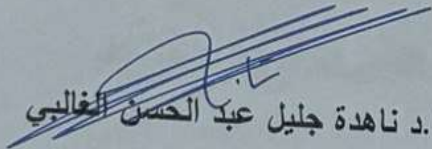 د ناهدة جليل عبد الحسن الغالبي.